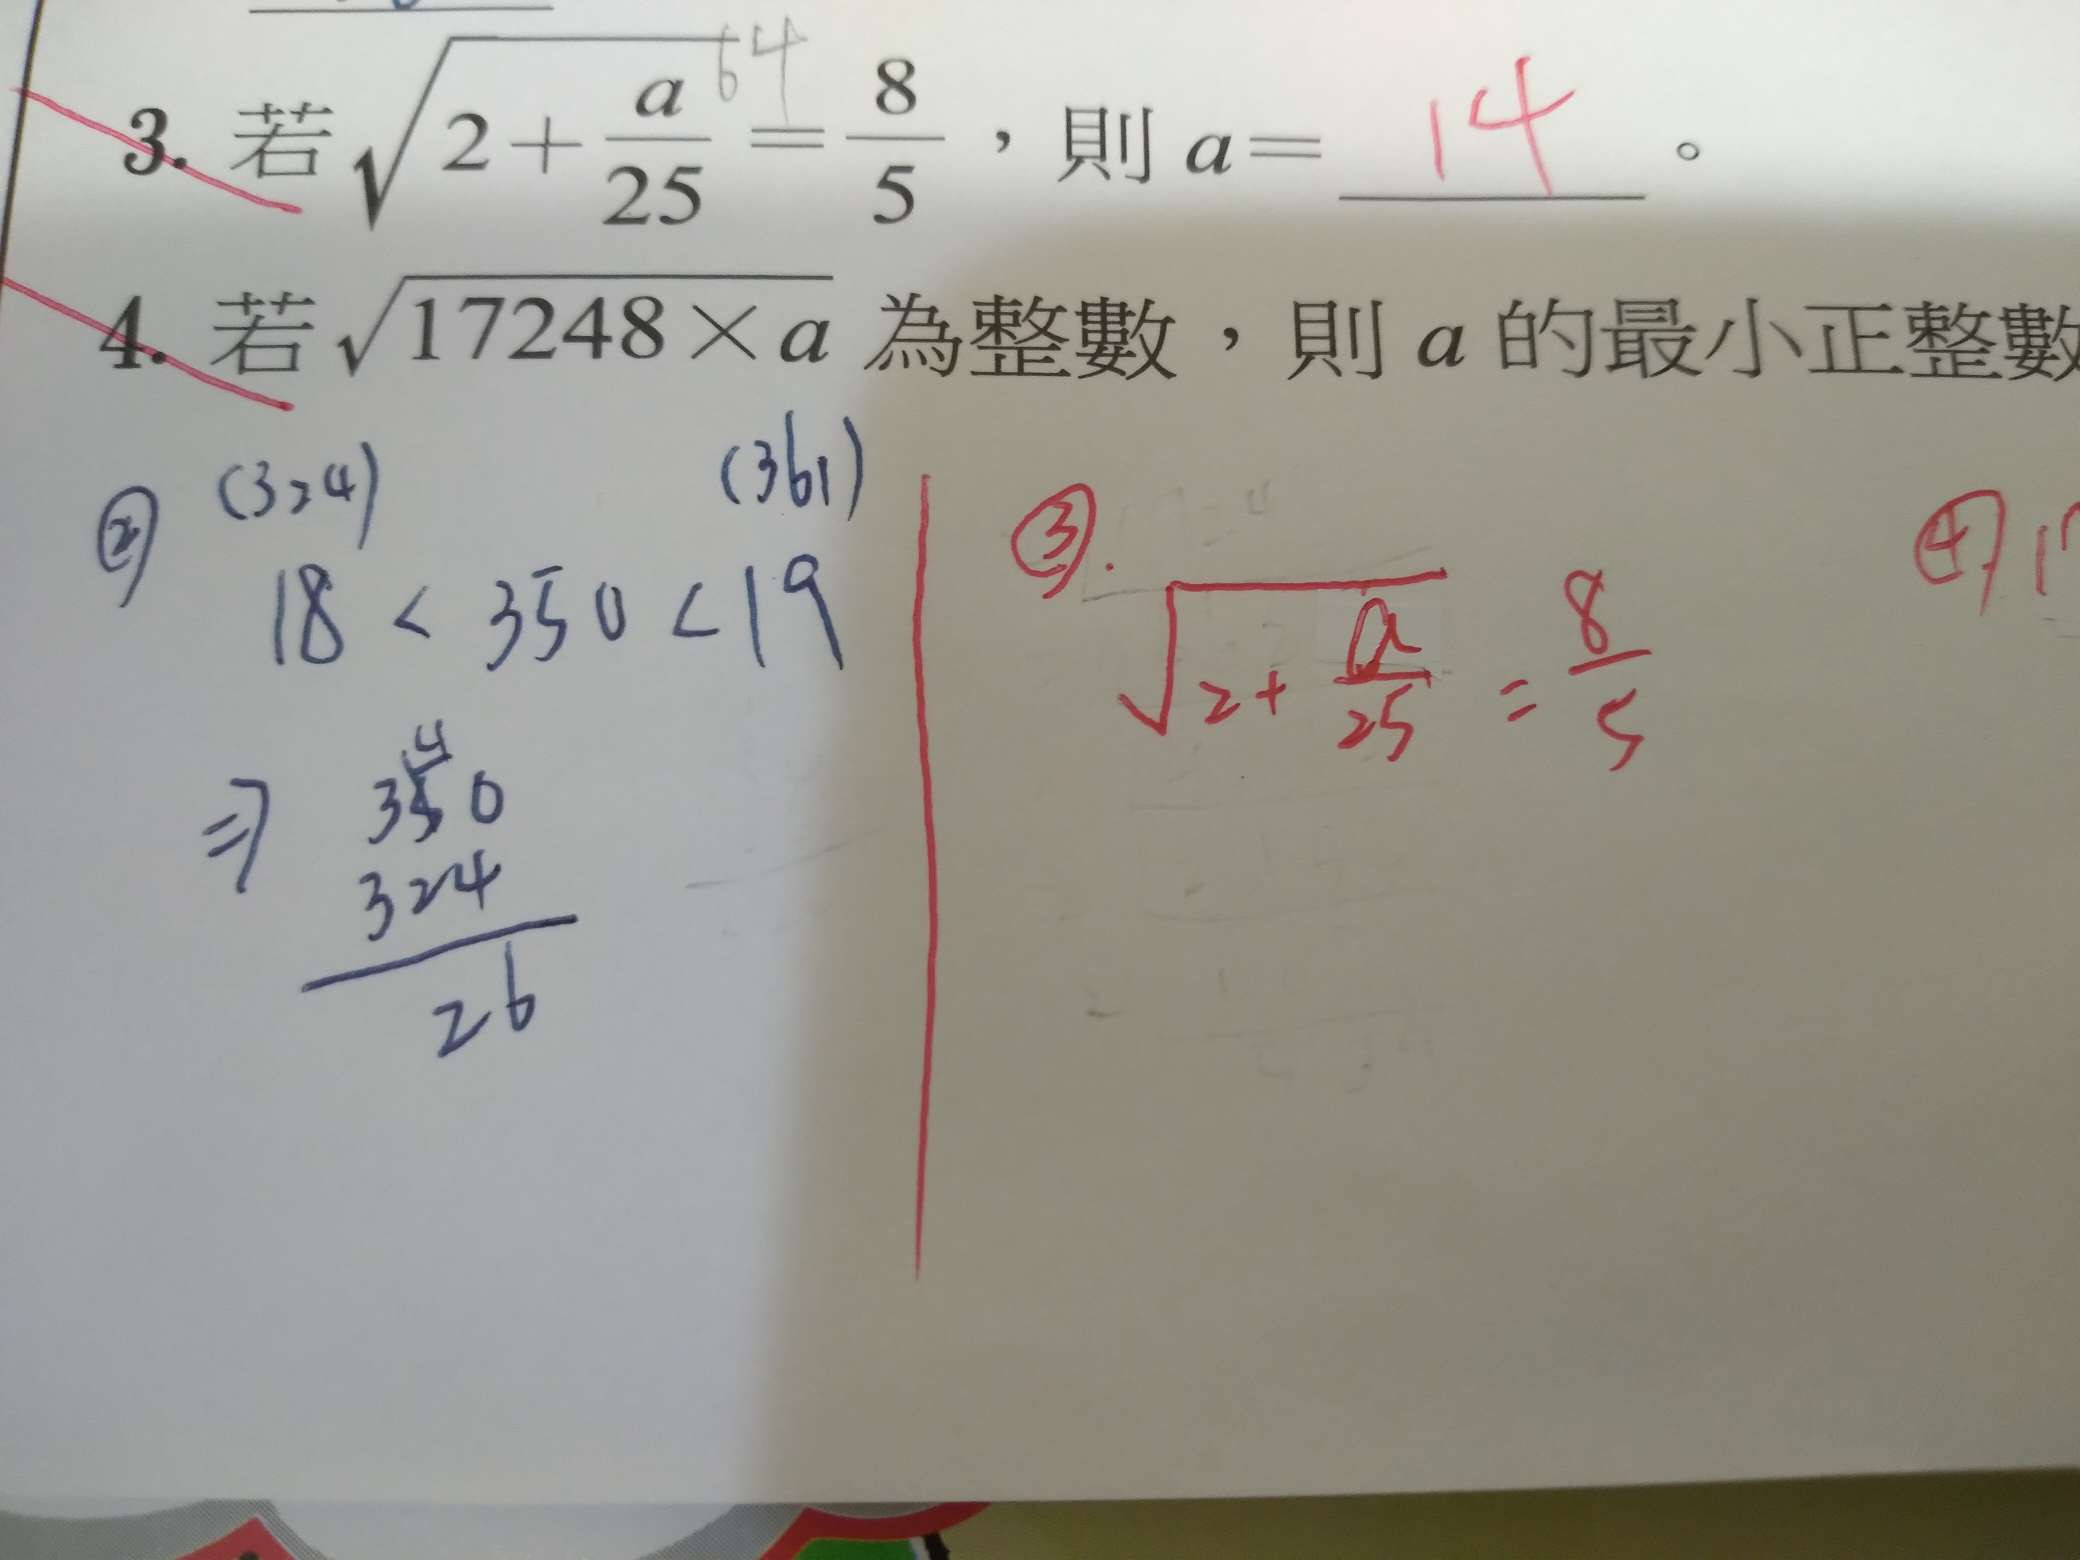 3. 若 √(2 + a/25) = 8/5 ，則 a = 14 。
64
4. 若 √(17248 × a) 為整數，則 a 的最小正整數
② (324) (361)
18 < 350 < 19
⇒ 350
4
324
26
③. √(2 + a/25) = 8/5
④ 1